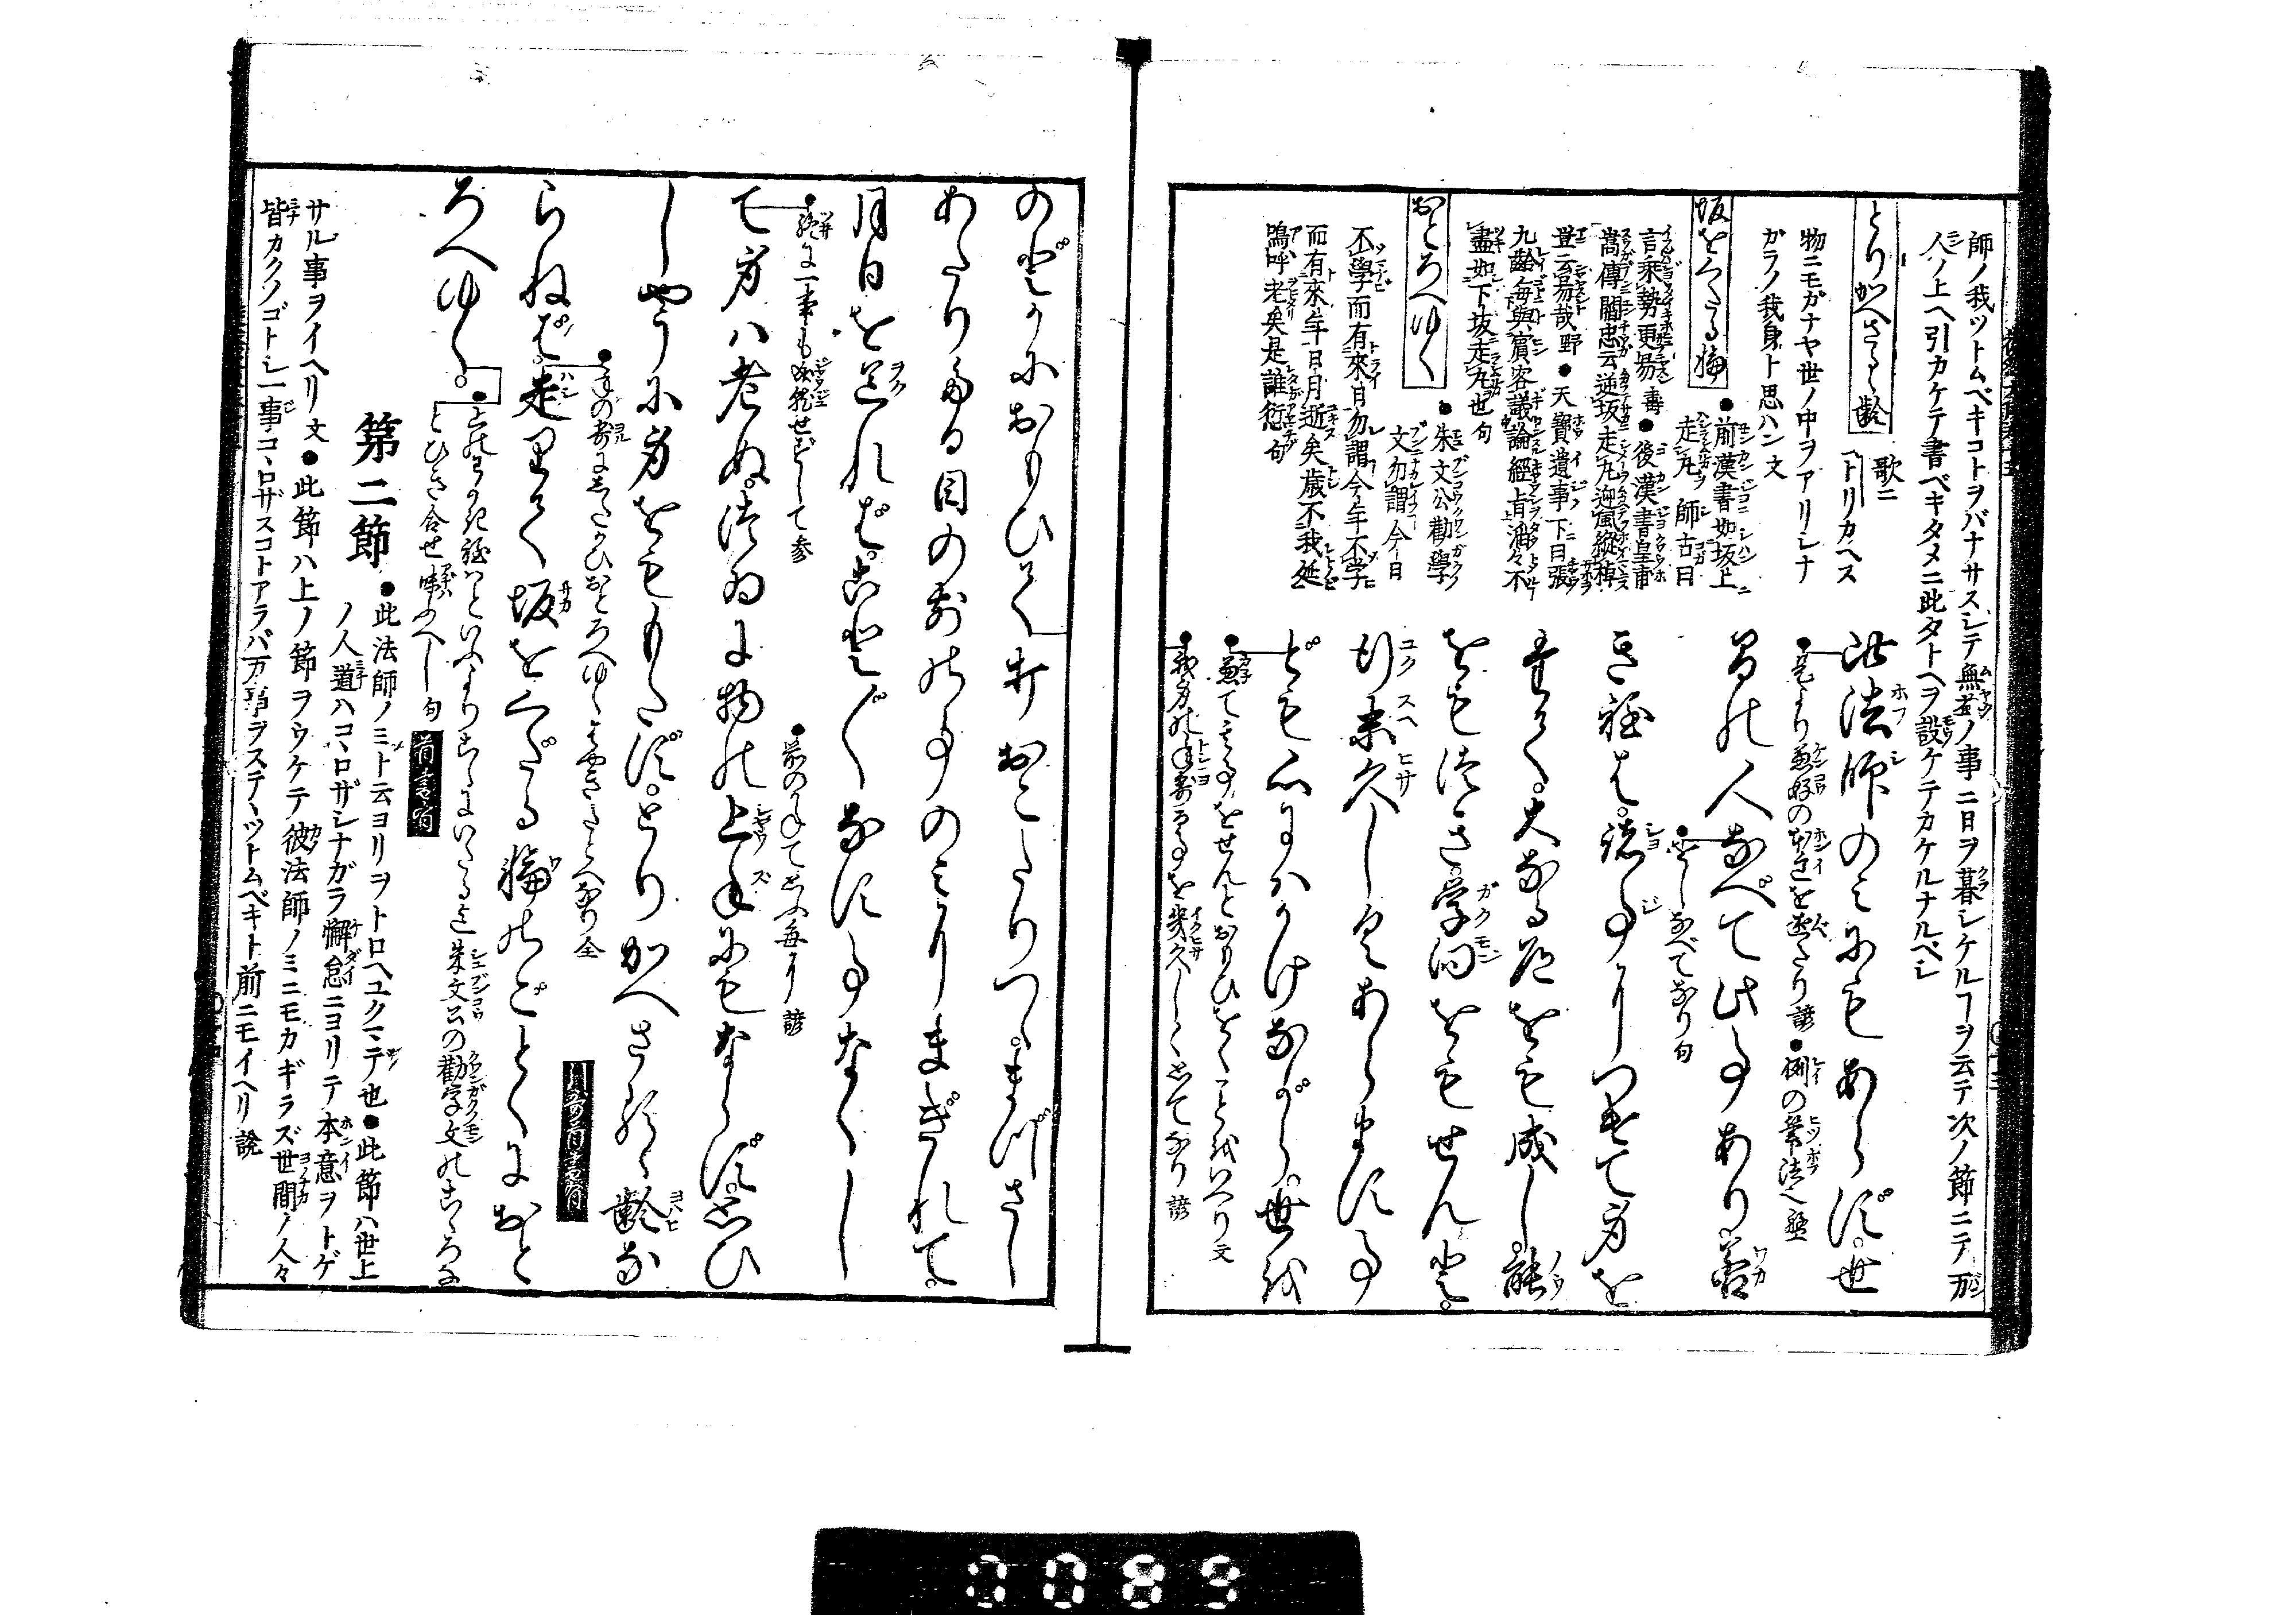 師ノ我ツトムベキコトヲバナサスシテ無益ノ事ニ日ヲ暮シケルヿヲ云テ次ノ節ニテ万
人ノ上ヘ引カケテ書ベキタメニ此タトヘヲ設ケテカケルナルベシ
とりかへさるゝ齢
歌ニ
トリカヘス
物ニモガナヤ世ノ中ヲアリシナ
ガラノ我身ト思ハン文
坂をくだる輪
●前漢書如坂上
走丸 師古曰
言乗勢更易 壽●後漢書皇甫
嵩傳閻忠云逆坂走丸迎風縦棹
豈云易哉野●天寶遺事下曰張
九齢毎與賓客議論經旨滔々不
盡如下坂走丸也句
おとろへゆく
●朱文公勸學
文勿謂今日
不學而有來日勿謂今年不学
而有來年日月逝矣歳不我延
嗚呼老矣是誰愆句
此法師のみにもあらず。世
●是より兼好の本意を述たり諺●例の筆法也盤
間の人なべて此事あり。若
●をしなべてなり句
き程は。諸事につけて身を
立て。大なる道をも成し。能
をもつき。学問をもせんと。
行末久しくあらます事
ども心にはかけながら。世を
●兼て其事をせんとおもひをくことをいへり文
●我身の年寿なる事を幾久しくとてなり諺
のどかにおもひて打おこたりつゝ。まづさし
あたりたる目の前の事のみにまぎれて。
月日を送れば。ことごとなす事なくし
●終に一事も成就せずして参
●前のかねて思ふ毎り諺
て身は老ぬ。つゐに物の上手にもならず。思ひ
しやうに身をももたず。とりかへさるゝ齢な
らねば。走りて坂をくだる輪のごとくにおと
ろへゆく。
●上のわかき程はといふよりこゝにいたる迄朱文公の勧学文のこゝろに
とひき合せ味ふべし句
首書有
第二節
●此法師ノミト云ヨリヲトロヘユクマテ也●此節ハ世上
ノ人道ハコヽロザシナガラ懈怠ニヨリテ本意ヲトゲ
サル事ヲイヘリ文●此節ハ上ノ節ヲウケテ彼法師ノミニモカギラズ世間ノ人々
皆カクノゴトシ一事コヽロザスコトアラバ万事ヲステヽツトムベキト前ニモイヘリ説
0083